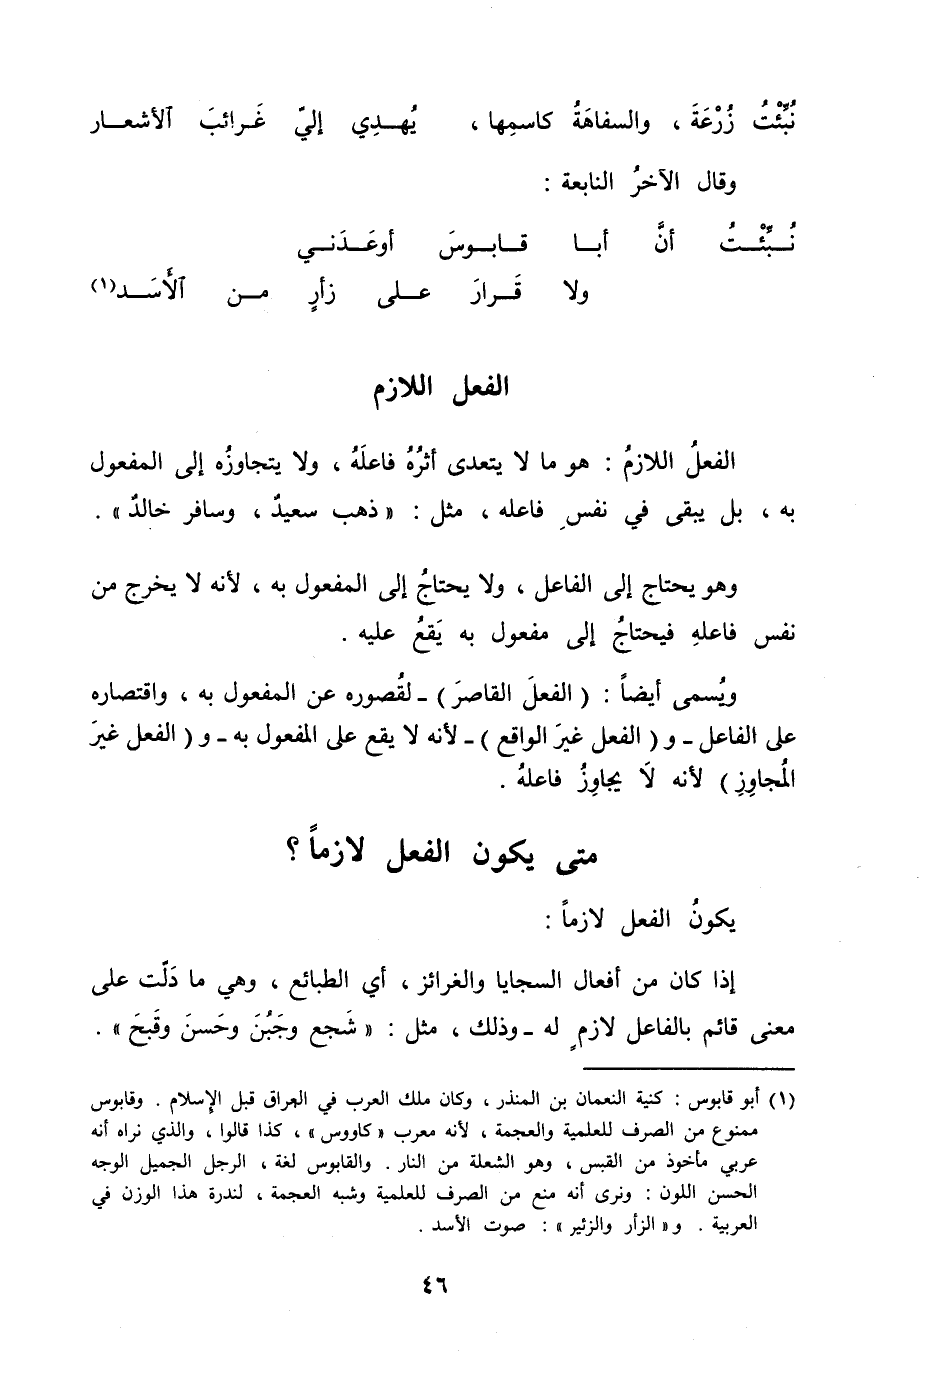 نُبِّئْتُ زُرْعَةَ ، والسفاهَةُ كاسمِها ، يُهـدِي إليّ غَـرائبَ ٱلأشعـار
وقال الآخرُ النابعة :
نُـبِّئْـتُ أنَّ أبـا قـابـوسَ أوعَـدَنـي
ولا قَـرارَ علـى زأرٍ مـن ٱلأَسَـد(١)
الفعل اللازم
الفعلُ اللازمُ : هو ما لا يتعدى أثرُهُ فاعلَهُ ، ولا يتجاوزُه إلى المفعول
به ، بل يبقى في نفسِ فاعله ، مثل : « ذهب سعيدٌ ، وسافر خالدٌ » .
وهو يحتاج إلى الفاعل ، ولا يحتاجُ إلى المفعول به ، لأنه لا يخرج من
نفس فاعلهِ فيحتاجُ إلى مفعول به يَقعُ عليه .
ويُسمى أيضاً : ( الفعلَ القاصرَ ) ـ لقُصوره عن المفعول به ، واقتصاره
على الفاعل ـ و ( الفعل غيرَ الواقع ) ـ لأنه لا يقع على المفعول به ـ و ( الفعل غيرَ
المُجاوِزِ ) لأنه لَا يجاوِزُ فاعلهُ .
متى يكون الفعل لازماً ؟
يكونُ الفعل لازماً :
إذا كان من أفعال السجايا والغرائز ، أي الطبائع ، وهي ما دَلّت على
معنى قائم بالفاعل لازمٍ له ـ وذلك ، مثل : « شَجع وجَبُنَ وحَسنَ وقَبحَ » .
(١) أبو قابوس : كنية النعمان بن المنذر ، وكان ملك العرب في العراق قبل الإسلام . وقابوس
ممنوع من الصرف للعلمية والعجمة ، لأنه معرب « كاووس » ، كذا قالوا ، والذي نراه أنه
عربي مأخوذ من القبس ، وهو الشعلة من النار . والقابوس لغة ، الرجل الجميل الوجه
الحسن اللون : ونرى أنه منع من الصرف للعلمية وشبه العجمة ، لندرة هذا الوزن في
العربية . و « الزأر والزئير » : صوت الأسد .
٤٦